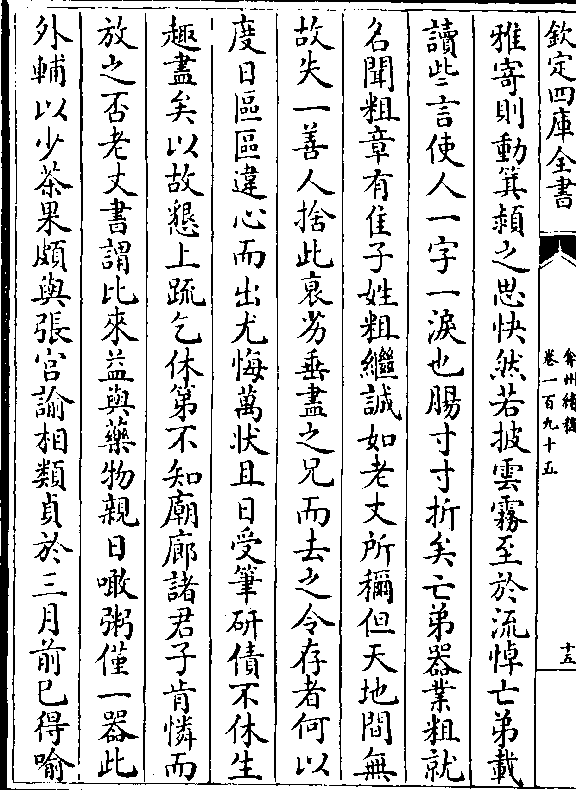 欽定四庫全書
弇州續稿
卷一百九十五
十五
雅寄則動箕潁之思快然若披雲霧至於流悼亡弟載
讀此言使人一字一淚也腸寸寸折矣亡弟器業粗就
名聞粗章有隹子姓粗繼誠如老丈所稱但天地間無
故失一善人捨此衰劣垂盡之兄而去之令存者何以
度日區區違心而出尤悔萬狀且日受筆研債不休生
趣盡矣以故懇上疏乞休第不知廟廊諸君子肯憐而
放之否老丈書謂比來益與藥物親日噉粥僅一器此
外輔以少茶果頗與張宮諭相類貞於三月前已得喻